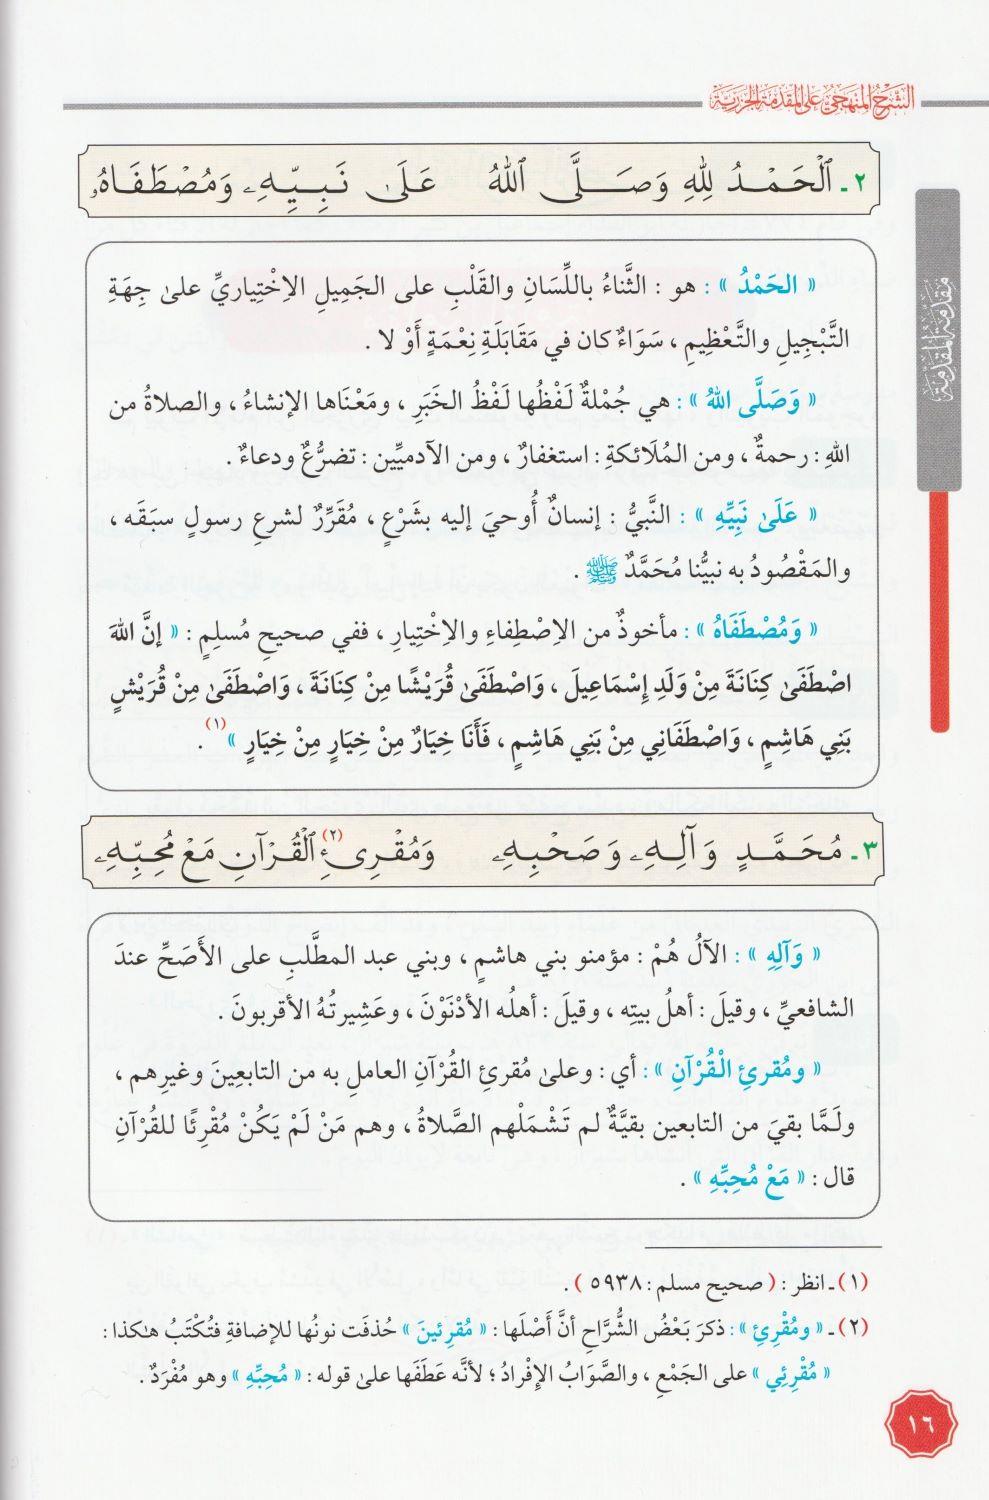 الشرح المنهجي على المقدمة الجزرية
٢ - ٱلْحَمْدُ لِلهِ وَصَلَّى ٱللهُ عَلَىٰ نَبِيِّهِۦ وَمُصْطَفَاهُۥ
مقدمة المقدمة
« الحَمْدُ » : هو : الثَّناءُ باللِّسَانِ والقَلْبِ على الجَمِيلِ الاِخْتِيارِيِّ علىٰ جِهَةِ
التَّبْجِيلِ والتَّعْظِيمِ ، سَوَاءٌ كان في مَقَابَلَةِ نِعْمَةٍ أَوْ لا .
« وَصَلَّى اللهُ » : هي جُمْلةٌ لَفْظُها لَفْظُ الخَبَرِ ، ومَعْنَاها الإنشاءُ ، والصلاةُ من
اللهِ : رحمةٌ ، ومن المُلَائكةِ : استغفارٌ ، ومن الآدميِّين : تضرُّعٌ ودعاءٌ .
« عَلَىٰ نَبِيِّهِ » : النَّبيُّ : إنسانٌ أُوحيَ إليه بشَرْعٍ ، مُقَرِّرٌ لشرعِ رسولٍ سبَقَه ،
والمَقْصُودُ به نبيُّنا مُحَمَّدٌ ﷺ .
« وَمُصْطَفَاهُ » : مأخوذٌ من الاِصْطِفاءِ والاِخْتِيارِ ، ففي صحيحِ مُسلِمٍ : « إنَّ اللهَ
اصْطَفَىٰ كِنَانَةَ مِنْ وَلَدِ إِسْمَاعِيلَ ، وَاصْطَفَىٰ قُرَيْشًا مِنْ كِنَانَةَ ، وَاصْطَفَىٰ مِنْ قُرَيْشٍ
بَنِي هَاشِمٍ ، وَاصْطَفَانِي مِنْ بَنِي هَاشِمٍ ، فَأَنَا خِيَارٌ مِنْ خِيَارٍ مِنْ خِيَارٍ »(١) .
٣ - مُحَمَّدٍ وَآلِهِۦ وَصَحْبِهِۦ وَمُقْرِئِ(٢) ٱلْقُرْآنِ مَعْ مُحِبِّهِۦ
« وَآلِهِ » : الآلُ هُمْ : مؤمنو بني هاشمٍ ، وبني عبد المطَّلبِ على الأَصَحِّ عندَ
الشافعيِّ ، وقيلَ : أهلُ بيتِه ، وقيلَ : أهلُه الأدْنَوْنَ ، وعَشِيرتُهُ الأقربونَ .
« ومُقرئِ الْقُرْآنِ » : أي : وعلىٰ مُقرئِ القُرْآنِ العاملِ به من التابعِينَ وغيرِهم ،
ولَمَّا بقيَ من التابعين بقيَّةٌ لم تَشْمَلْهم الصَّلاةُ ، وهم مَنْ لَمْ يَكُنْ مُقْرِئًا للقُرْآنِ
قال : « مَعْ مُحِبِّهِ » .
(١) - انظر : ( صحيح مسلم : ٥٩٣٨ ) .
(٢) - « ومُقْرِئِ » : ذكرَ بَعْضُ الشُّرَّاحِ أنَّ أَصْلَها : « مُقرِئينَ » حُذفَت نونُها للإضافةِ فتُكْتَبُ هكذا :
« مُقْرِئِي » على الجَمْعِ ، والصَّوَابُ الإفْرادُ ؛ لأنَّه عَطَفَها علىٰ قوله : « مُحِبِّهِ » وهو مُفْرَدٌ .
١٦